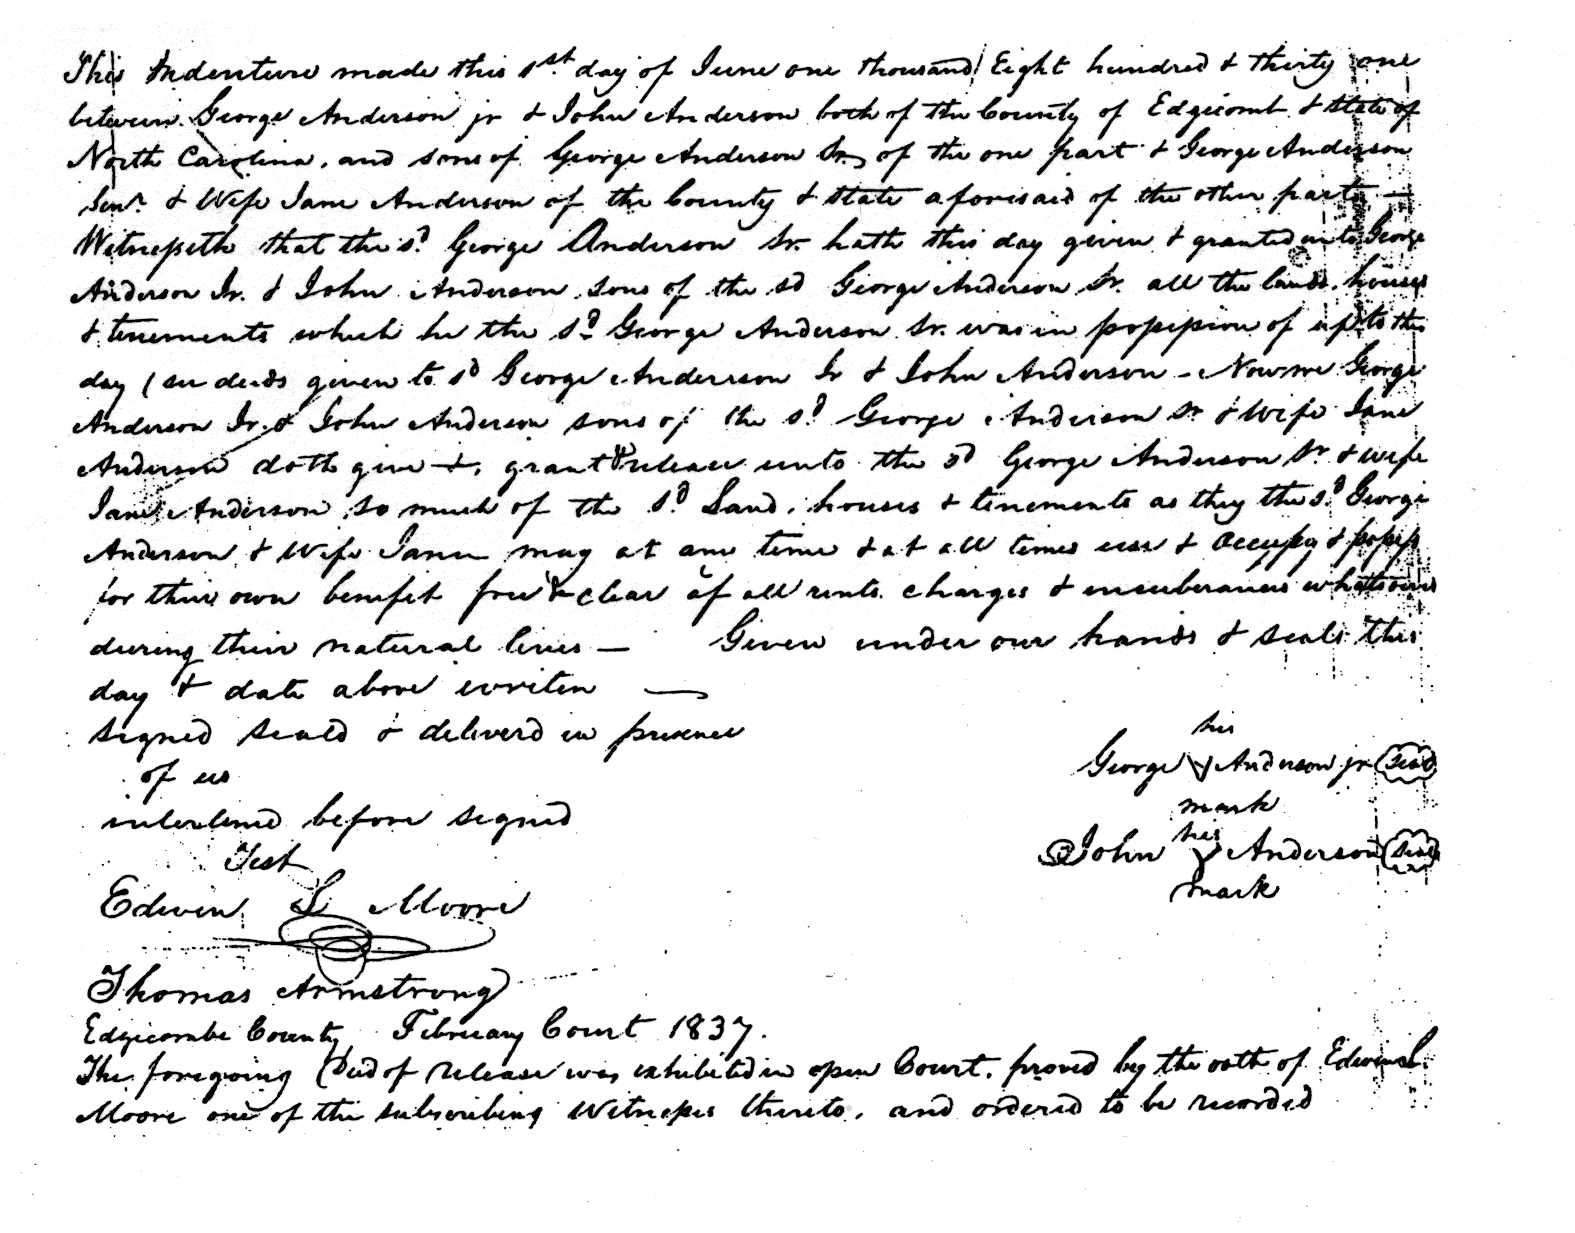 This Indenture made this 1st day of June one thousand Eight hundred & thirty one
between George Anderson jr & John Anderson both of the County of Edgicomb & State of
North Carolina, and sons of George Anderson Sr, of the one part & George Anderson
Senr & Wife Jane Anderson of the County & State aforesaid of the other part —
Witnesseth that the sd George Anderson Sr. hath this day given & granted unto George
Anderson Jr. & John Anderson sons of the sd George Anderson Sr. all the lands, houses
& tenements which he the sd George Anderson Sr. was in possession of up to this
day (see deeds given to sd George Anderson Jr & John Anderson - Now we George
Anderson Jr. & John Anderson sons of the sd George Anderson Sr & Wife Jane
Anderson doth give &, grant & release unto the sd George Anderson Sr & wife
Jane Anderson so much of the sd Land, houses & tenements as they the sd George
Anderson & Wife Jane may at any time & at all times use & occupy & possess
for their own benefit free & clear of all rents charges & incuberances whatsoever
during their natural lives — Given under our hands & seals this
day & date above writen —
signed seald & deliverd in presence
of us
interlined before signed
his
George Anderson jr Seal
mark
his
John Anderson Seal
mark
Test
Edwin L Moore
Thomas Armstrong
Edgicombe County February Court 1837.
The foregoing Deed of release was exhibited in open Court, proved by the oath of Edwin L.
Moore one of the subscribing Witnesses thereto, and ordered to be recorded